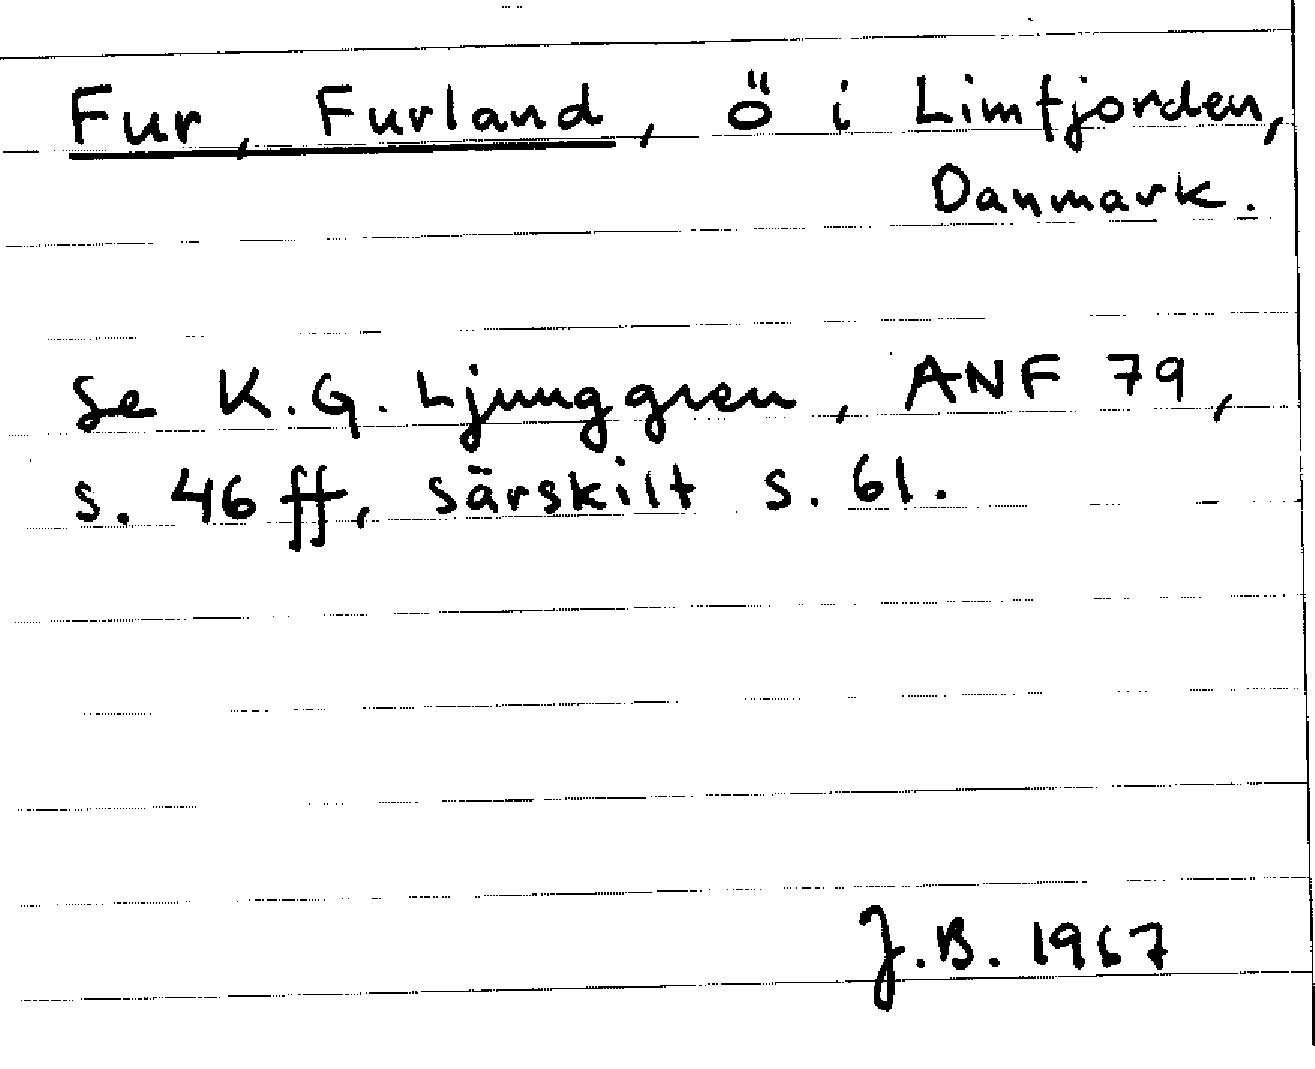 Fur, Furland, ö i Limfjorden,
Danmark.
Se K.G. Ljunggren, ANF 79,
s. 46 ff, särskilt s. 61.
J.B. 1967